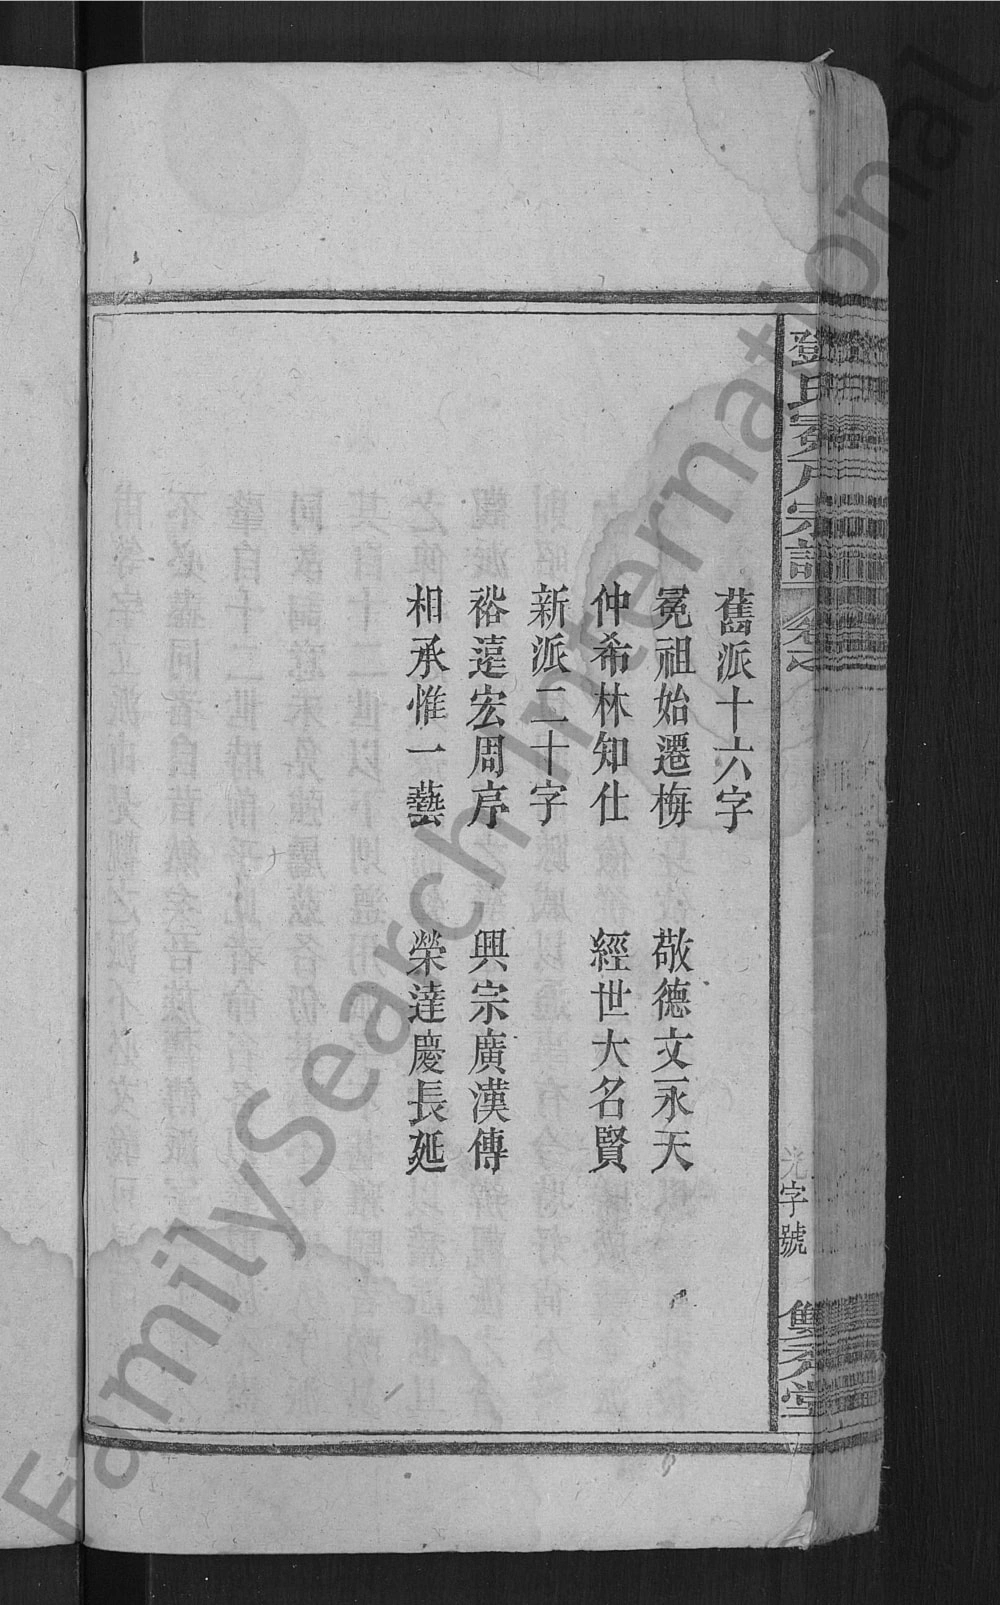 舊派十六字
冕祖始遷梅　敬德文永天
仲希林知仕　經世大名賢
新派二十字
裕遠宏周序　興宗廣漢傳
相承惟一藝　榮達慶長延
鄧氏冕房宗譜
卷之
光字號
雙秀堂
FamilySearch International